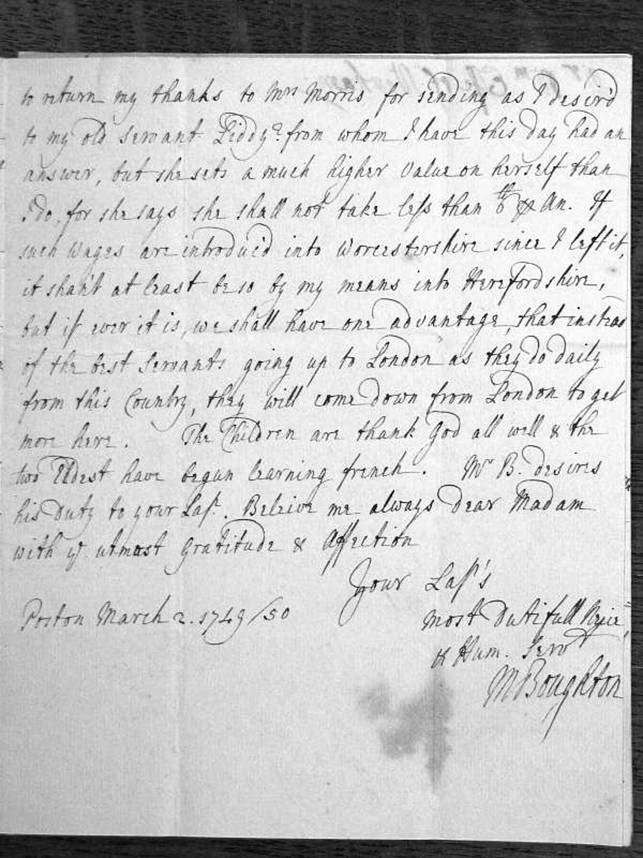 to return my thanks to Mrs Morris for sending as I desir'd
to my old servant Liddy? from whom I have this day had an
answer, but she sets a much higher Value on herself than
I do, for she says she shall not take less than 6 ₶ An. If
such Wages are introduc'd into Worcestershire since I left it,
it shan't at least be so by my means into Herefordshire,
but if ever it is, we shall have one advantage, that instead
of the best Servants going up to London as they do daily
from this Country, they will come down from London to get
more here. The Children are thank God all well & the
two Eldest have begun learning french. Mr B. desires
his Duty to your Lap. Beleive me always dear Madam
with yr utmost Gratitude & Affection
Your Lap's
Poston March 2. 1749/50
most Dutifull Neice
& Hum. Servt
MBoughton